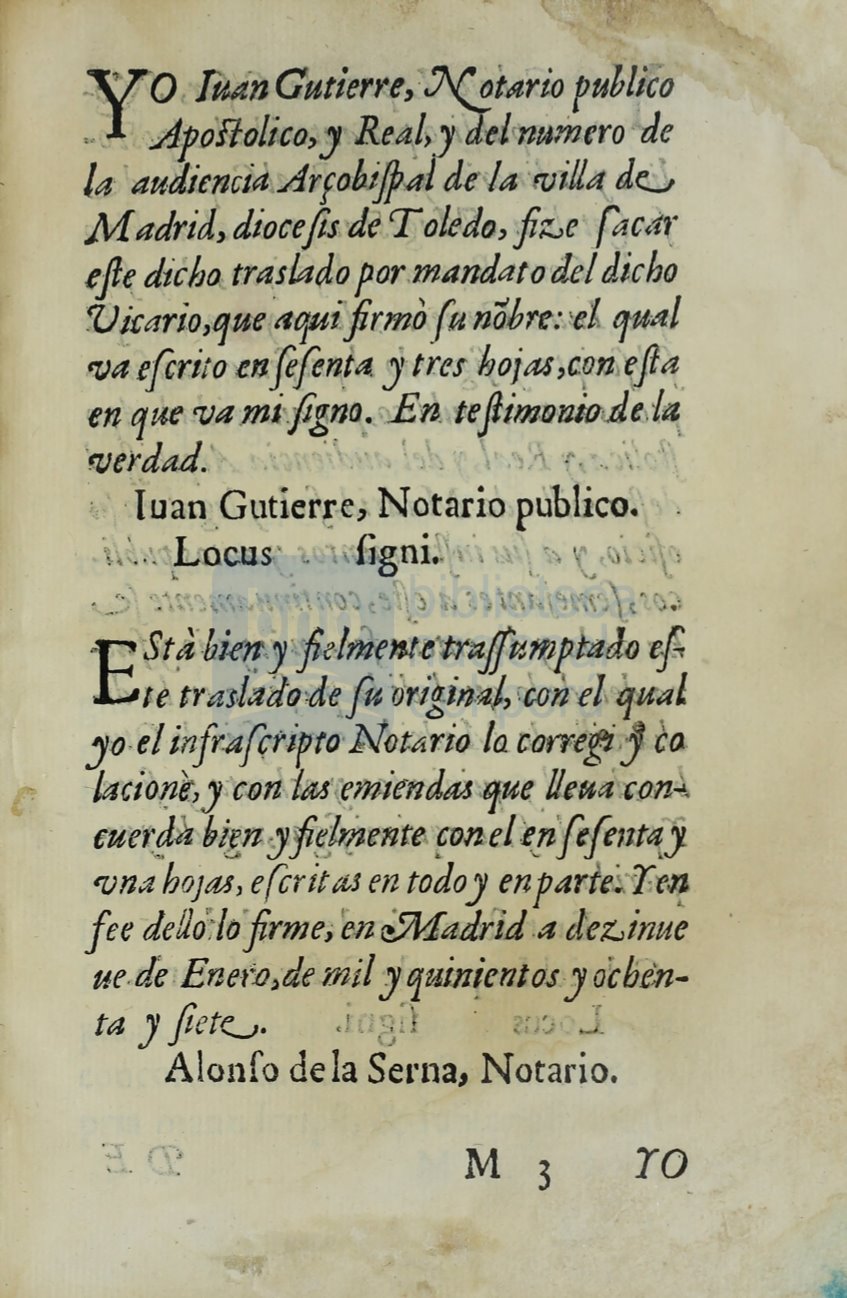 YO Iuan Gutierre, Notario publico
Apostolico, y Real, y del numero de
la audiencia Arçobispal de la villa de
Madrid, diocesis de Toledo, fize sacar
este dicho traslado por mandato del dicho
Vicario, que aqui firmò su nõbre: el qual
va escrito en sesenta y tres hojas, con esta
en que va mi signo. En testimonio de la
verdad.
Iuan Gutierre, Notario publico.
Locus signi.
EStà bien y fielmente trassumptado es-
te traslado de su original, con el qual
yo el infrascripto Notario lo corregi y co
lacionè, y con las emiendas que lleua con-
cuerda bien y fielmente con el en sesenta y
vna hojas, escritas en todo y en parte. Y en
fee dello lo firme, en Madrid a dezinue
ue de Enero, de mil y quinientos y ochen-
ta y siete.
Alonso de la Serna, Notario.
M 3 YO